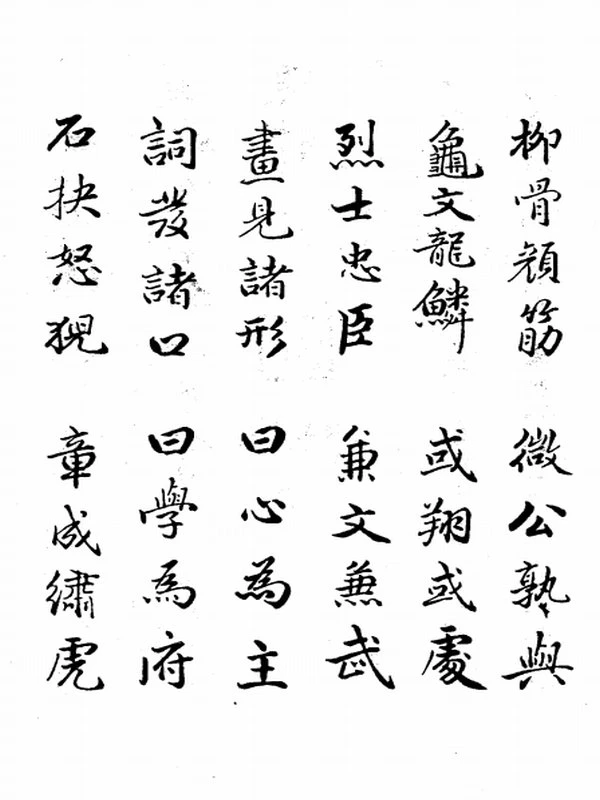 柳骨顏筋 微公孰與
龜文龍鱗 或翔或處
烈士忠臣 兼文兼武
畫見諸形 曰心為主
詞發諸口 曰學為府
石抉怒猊 章成繡虎